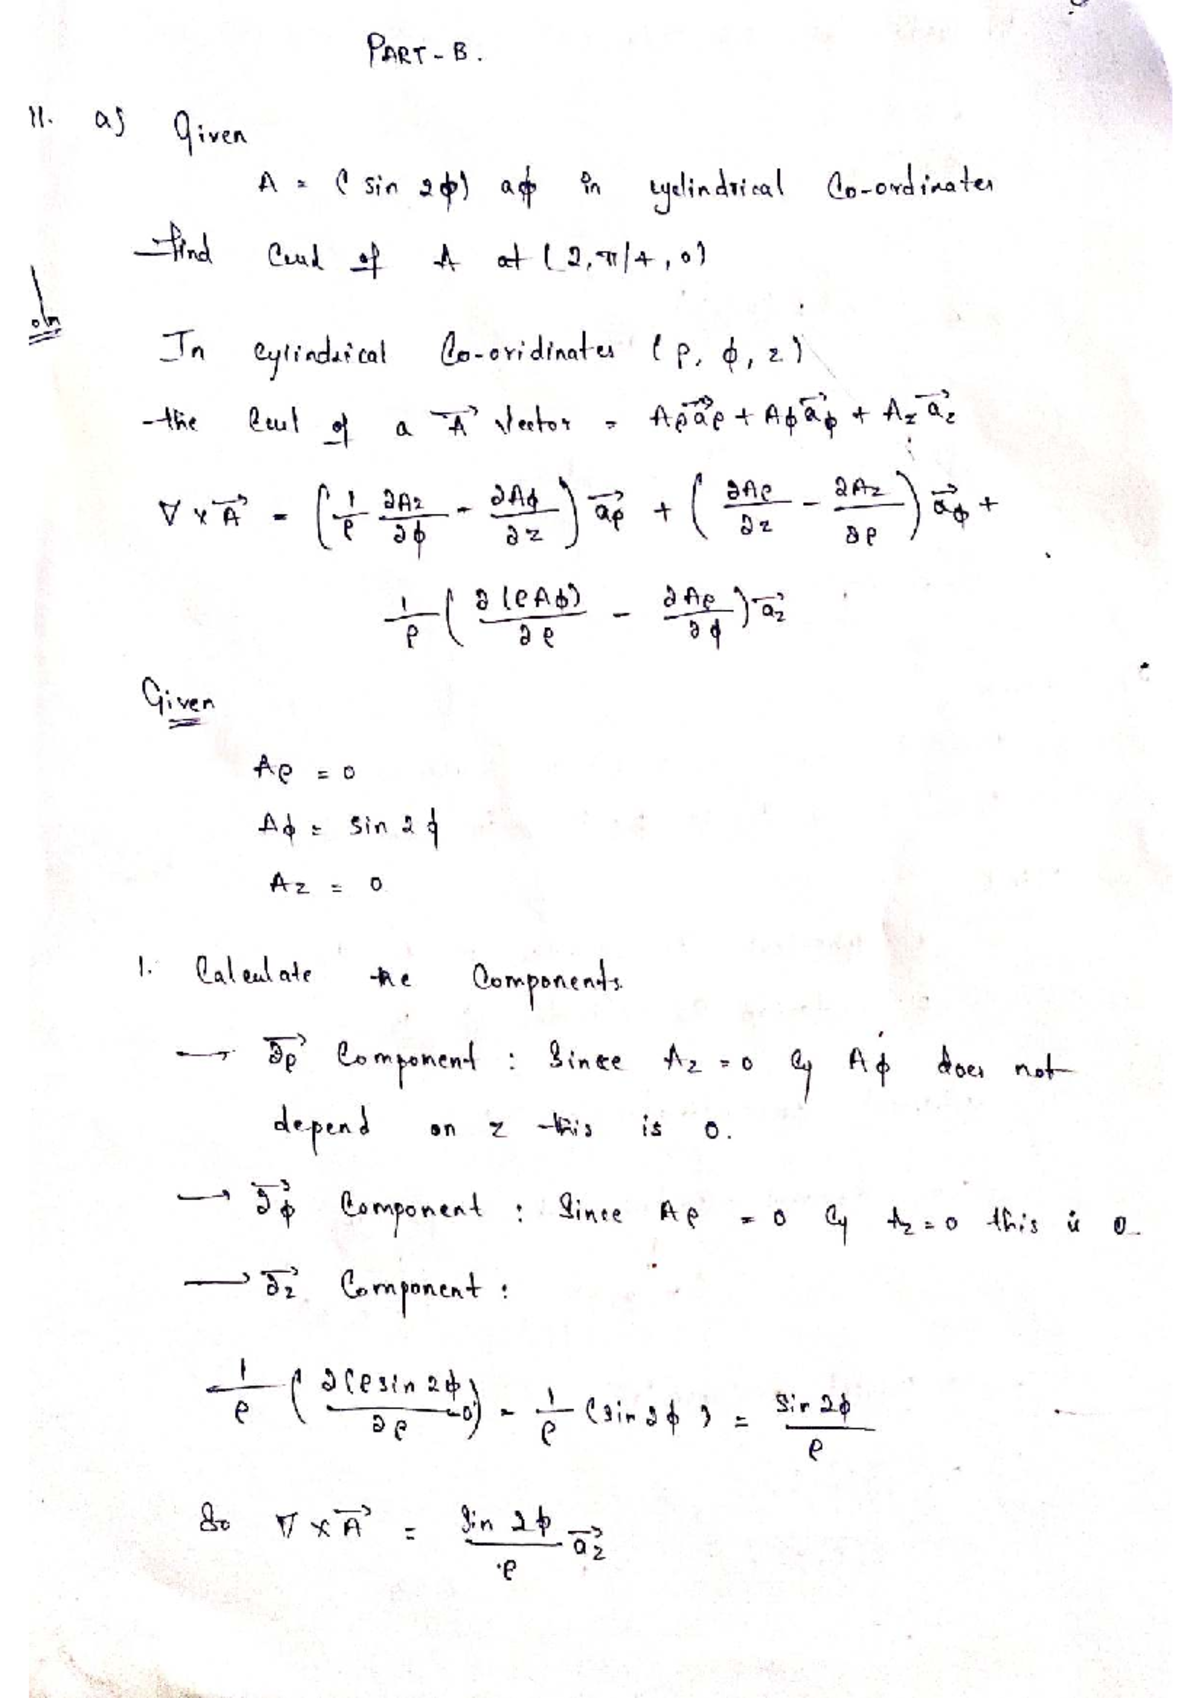 PART-B.
11. a) Given
A = (sin 2ϕ) aϕ in cylindrical Co-ordinates
find Curl of A at (2, π/4, 0)
soln
In cylindrical Co-oridinates (ρ, ϕ, z)
the Curl of a A⃗ Vector = Aρa⃗ρ + Aϕa⃗ϕ + Aza⃗z
∇ × A⃗ = (1/ρ ∂Az/∂ϕ - ∂Aϕ/∂z) a⃗ρ + (∂Aρ/∂z - ∂Az/∂ρ) a⃗ϕ +
1/ρ (∂(ρAϕ)/∂ρ - ∂Aρ/∂ϕ) a⃗z
Given
Aρ = 0
Aϕ = sin 2ϕ
Az = 0
1. Calculate the Components.
→ ∂⃗ρ Component : Since Az = 0 & Aϕ does not
depend on z this is 0.
→ ∂⃗ϕ Component : Since Aρ = 0 & Az = 0 this is 0
→ ∂⃗z Component :
1/ρ (∂(ρ sin 2ϕ)/∂ρ - 0) = 1/ρ (sin 2ϕ) = sin 2ϕ/ρ
So ∇ × A⃗ = Sin 2ϕ/ρ a⃗z